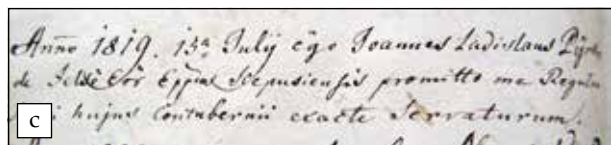 Anno 1819. 15a Julij ego Joannes Ladislaus Pyrk
de Felső Eör Eppus Scepusiensis promitto me Regulas
hujus Contubernii exacte Serraturum.
c